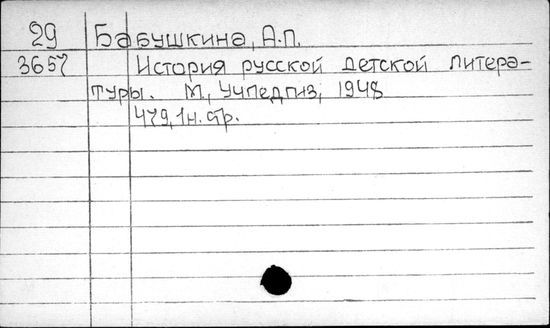 29 Бабушкина, А.П.
3657 История русской детской литера-
туры. М., Учпедгиз, 1948
479, 1н. стр.